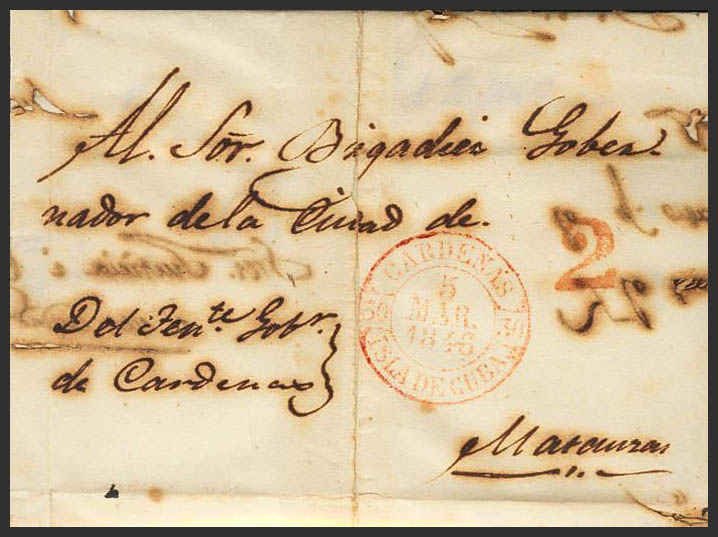 Al. Sőr. Brigadier Gober-
nador de la Ciudad de.
2
CARDENAS
5
MAR.
1846
ISLA DE CUBA
Del Tente. Gobr.
de Cardenas
Matanzas